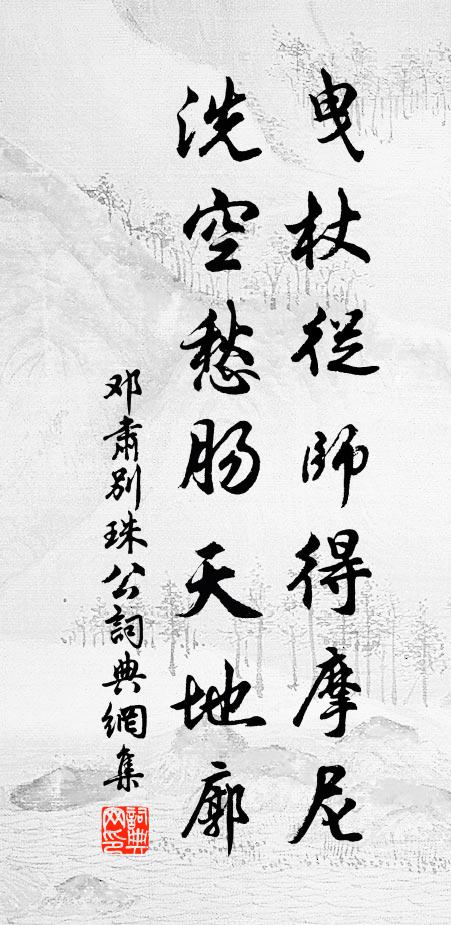 曳杖從師得摩尼
洗空愁肠天地廓
邓肅别珠公詞典網集
詞典网印